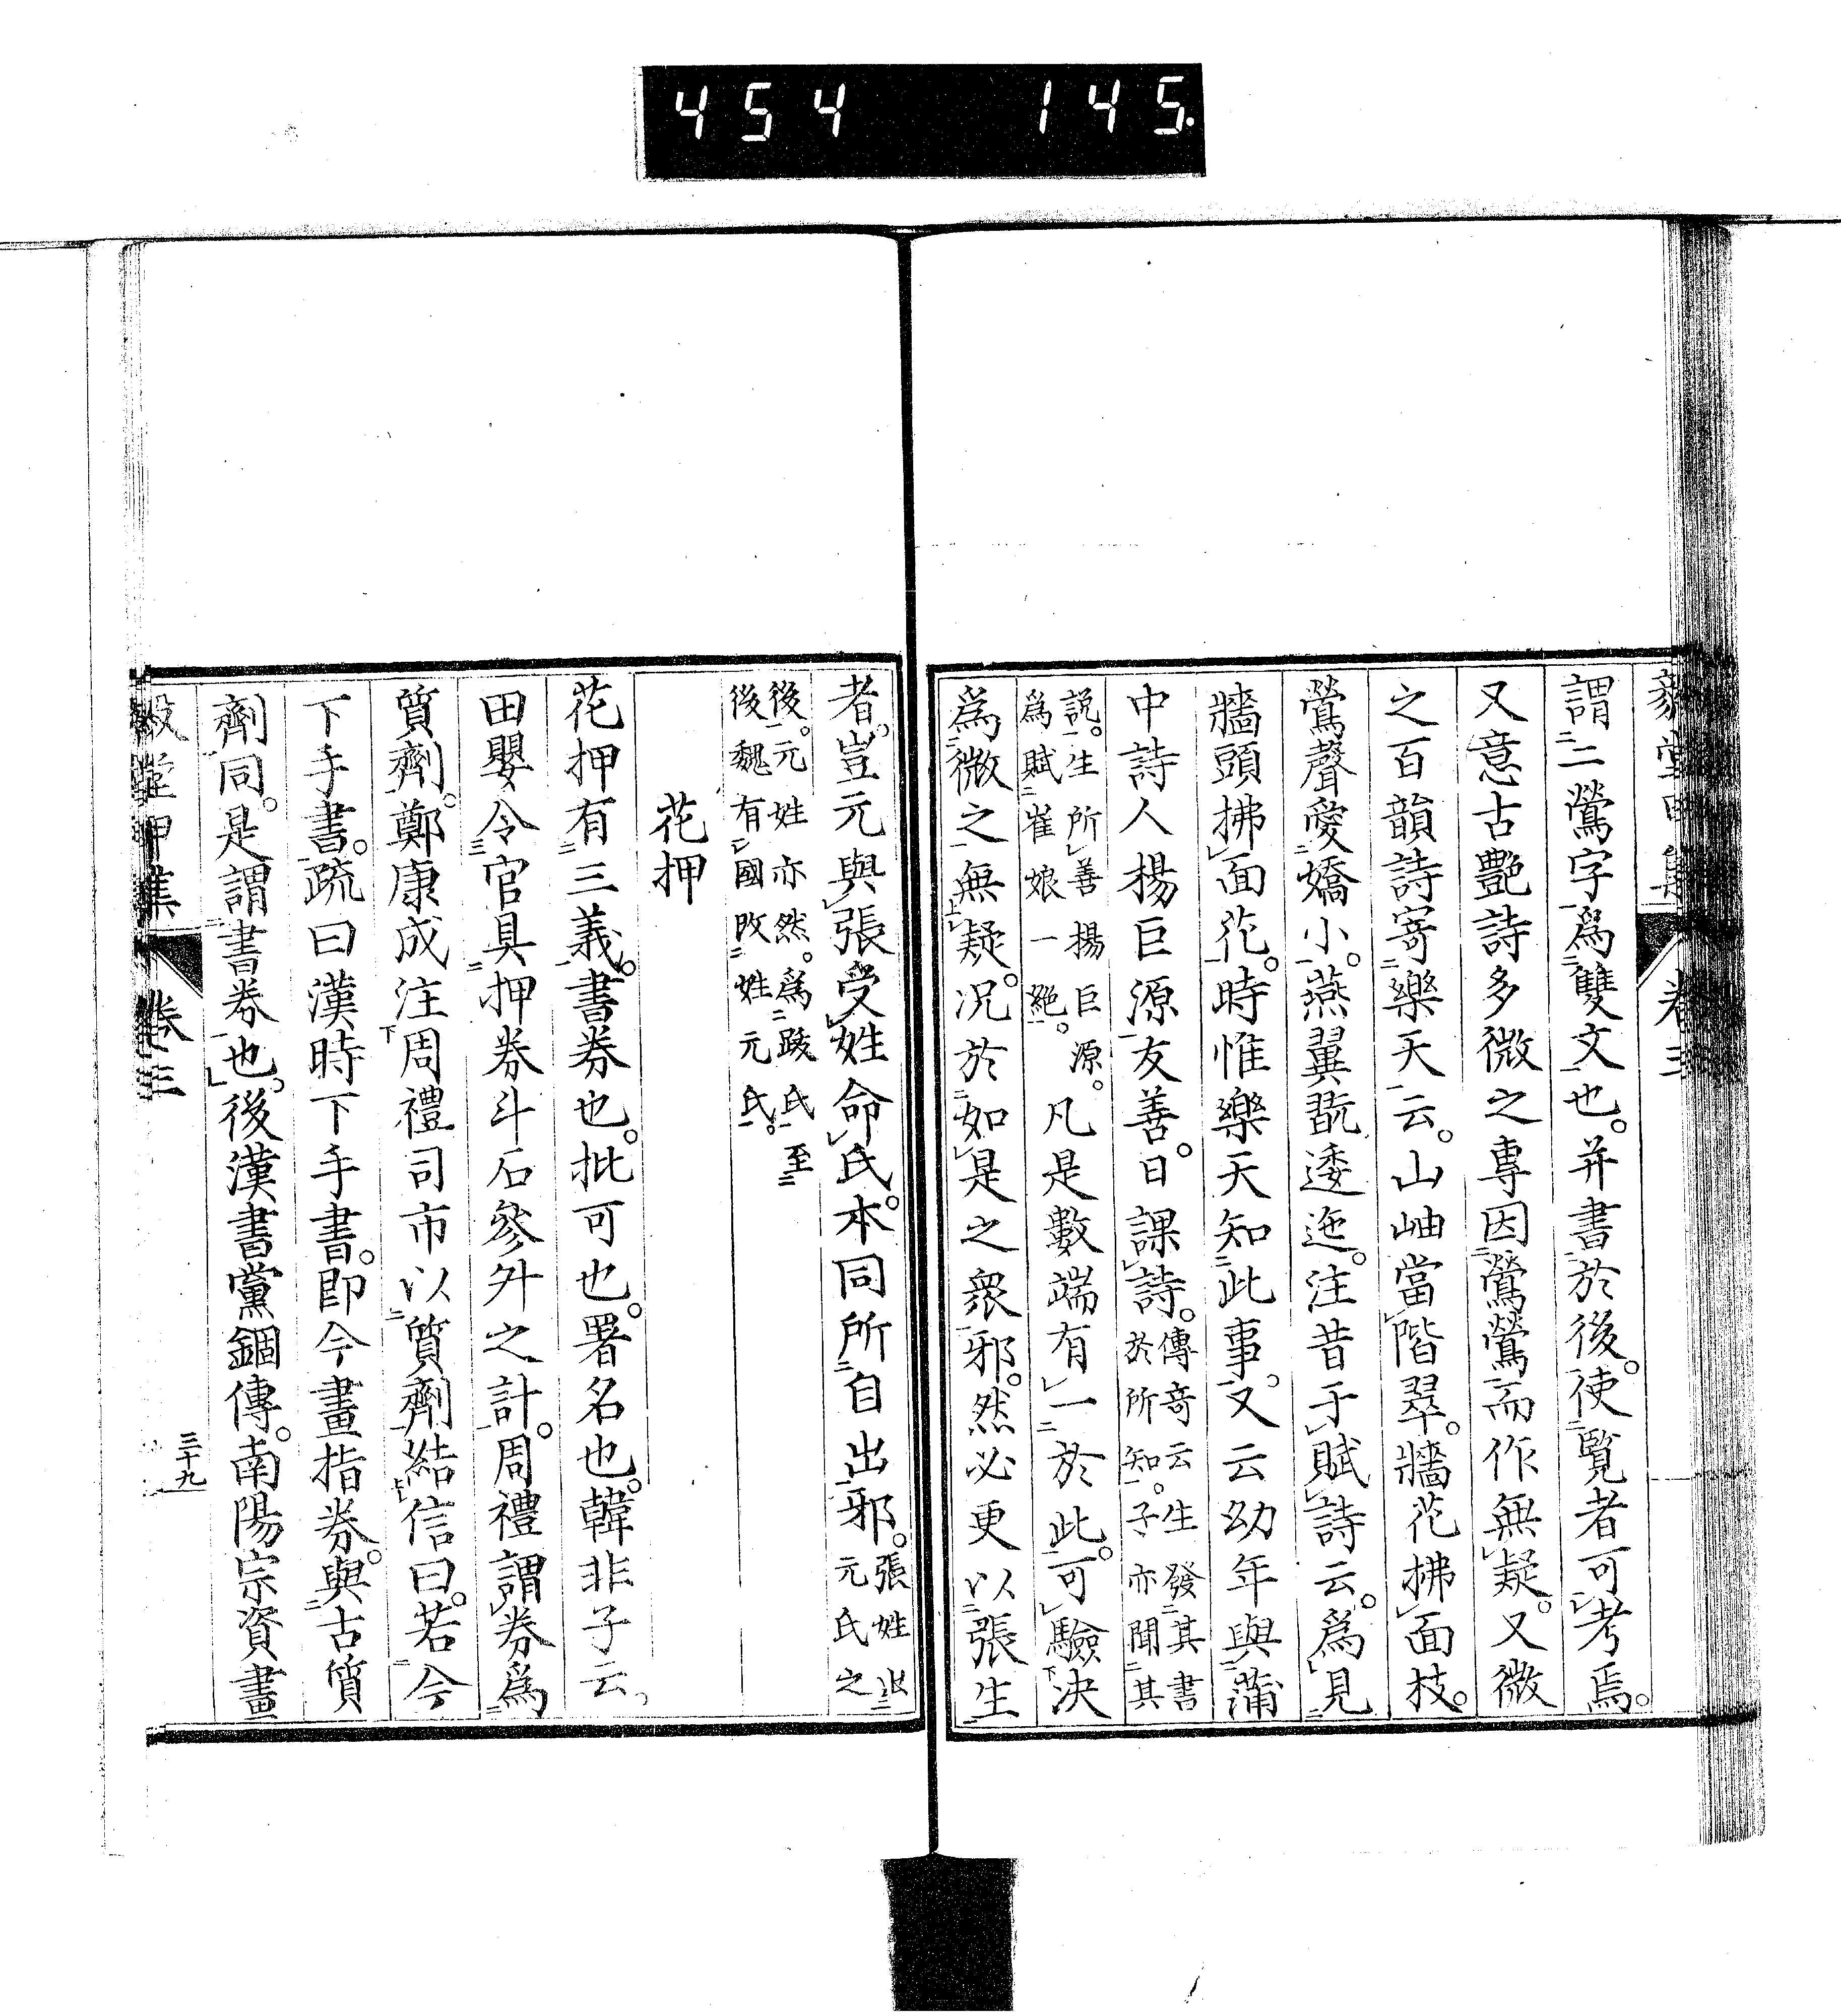 454 145.
謂二鶯字爲雙文也。并書於後。使覽者可考焉。
又意古艷詩多微之專因鶯鶯而作無疑。又微
之百韻詩寄樂天云。山岫當階翠。牆花拂面枝。
鶯聲愛嬌小。燕翼翫逶迤。注昔予賦詩云。爲見
牆頭拂面花。時惟樂天知此事。又云幼年與蒲
中詩人楊巨源友善。日課詩。傳奇云生發其書
於所知。予亦聞其
說。生所善楊巨源。
爲賦崔娘一絕。
凡是數端有一於此。可驗決
爲微之無疑。況於如是之衆邪。然必更以張生
者。豈元與張受姓命氏。本同所自出邪。張姓出
元氏之
後。元姓亦然。爲跋氏至
後魏有國改姓元氏。
花押
花押有三義。書券也。批可也。署名也。韓非子云。
田嬰令官具押券斗石參升之計。周禮謂券爲
質劑。鄭康成注周禮司市以質劑結信曰。若今
下手書。疏曰漢時下手書。卽今畫指券。與古質
劑同。是謂書券也。後漢書黨錮傳。南陽宗資畫
卷三
三十九